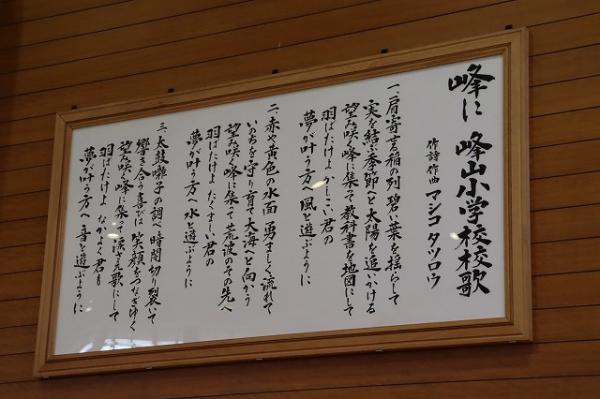 峰に 峰山小学校校歌
作詩作曲 マシコ タツロウ
一、肩寄せる稲の列 碧い葉を揺らして
実を結ぶ季節へと太陽を追いかける
望み咲く峰に集って教科書を地図にして
羽ばたけよ かしこい君の
夢が叶う方へ 風と遊ぶように
二、赤や黄色の水面 勇ましく流れて
いのちを守り育て大海へと向かう
望み咲く峰に集って荒波のその先へ
羽ばたけよ たくましい君の
夢が叶う方へ 水と遊ぶように
三、太鼓囃子の調べ 時間切り裂いて
響き合う喜びは 笑顔をつなぎゆく
望み咲く峰に集って涙さえ歌にして
羽ばたけよ なかよく君も
夢が叶う方へ 音と遊ぶように